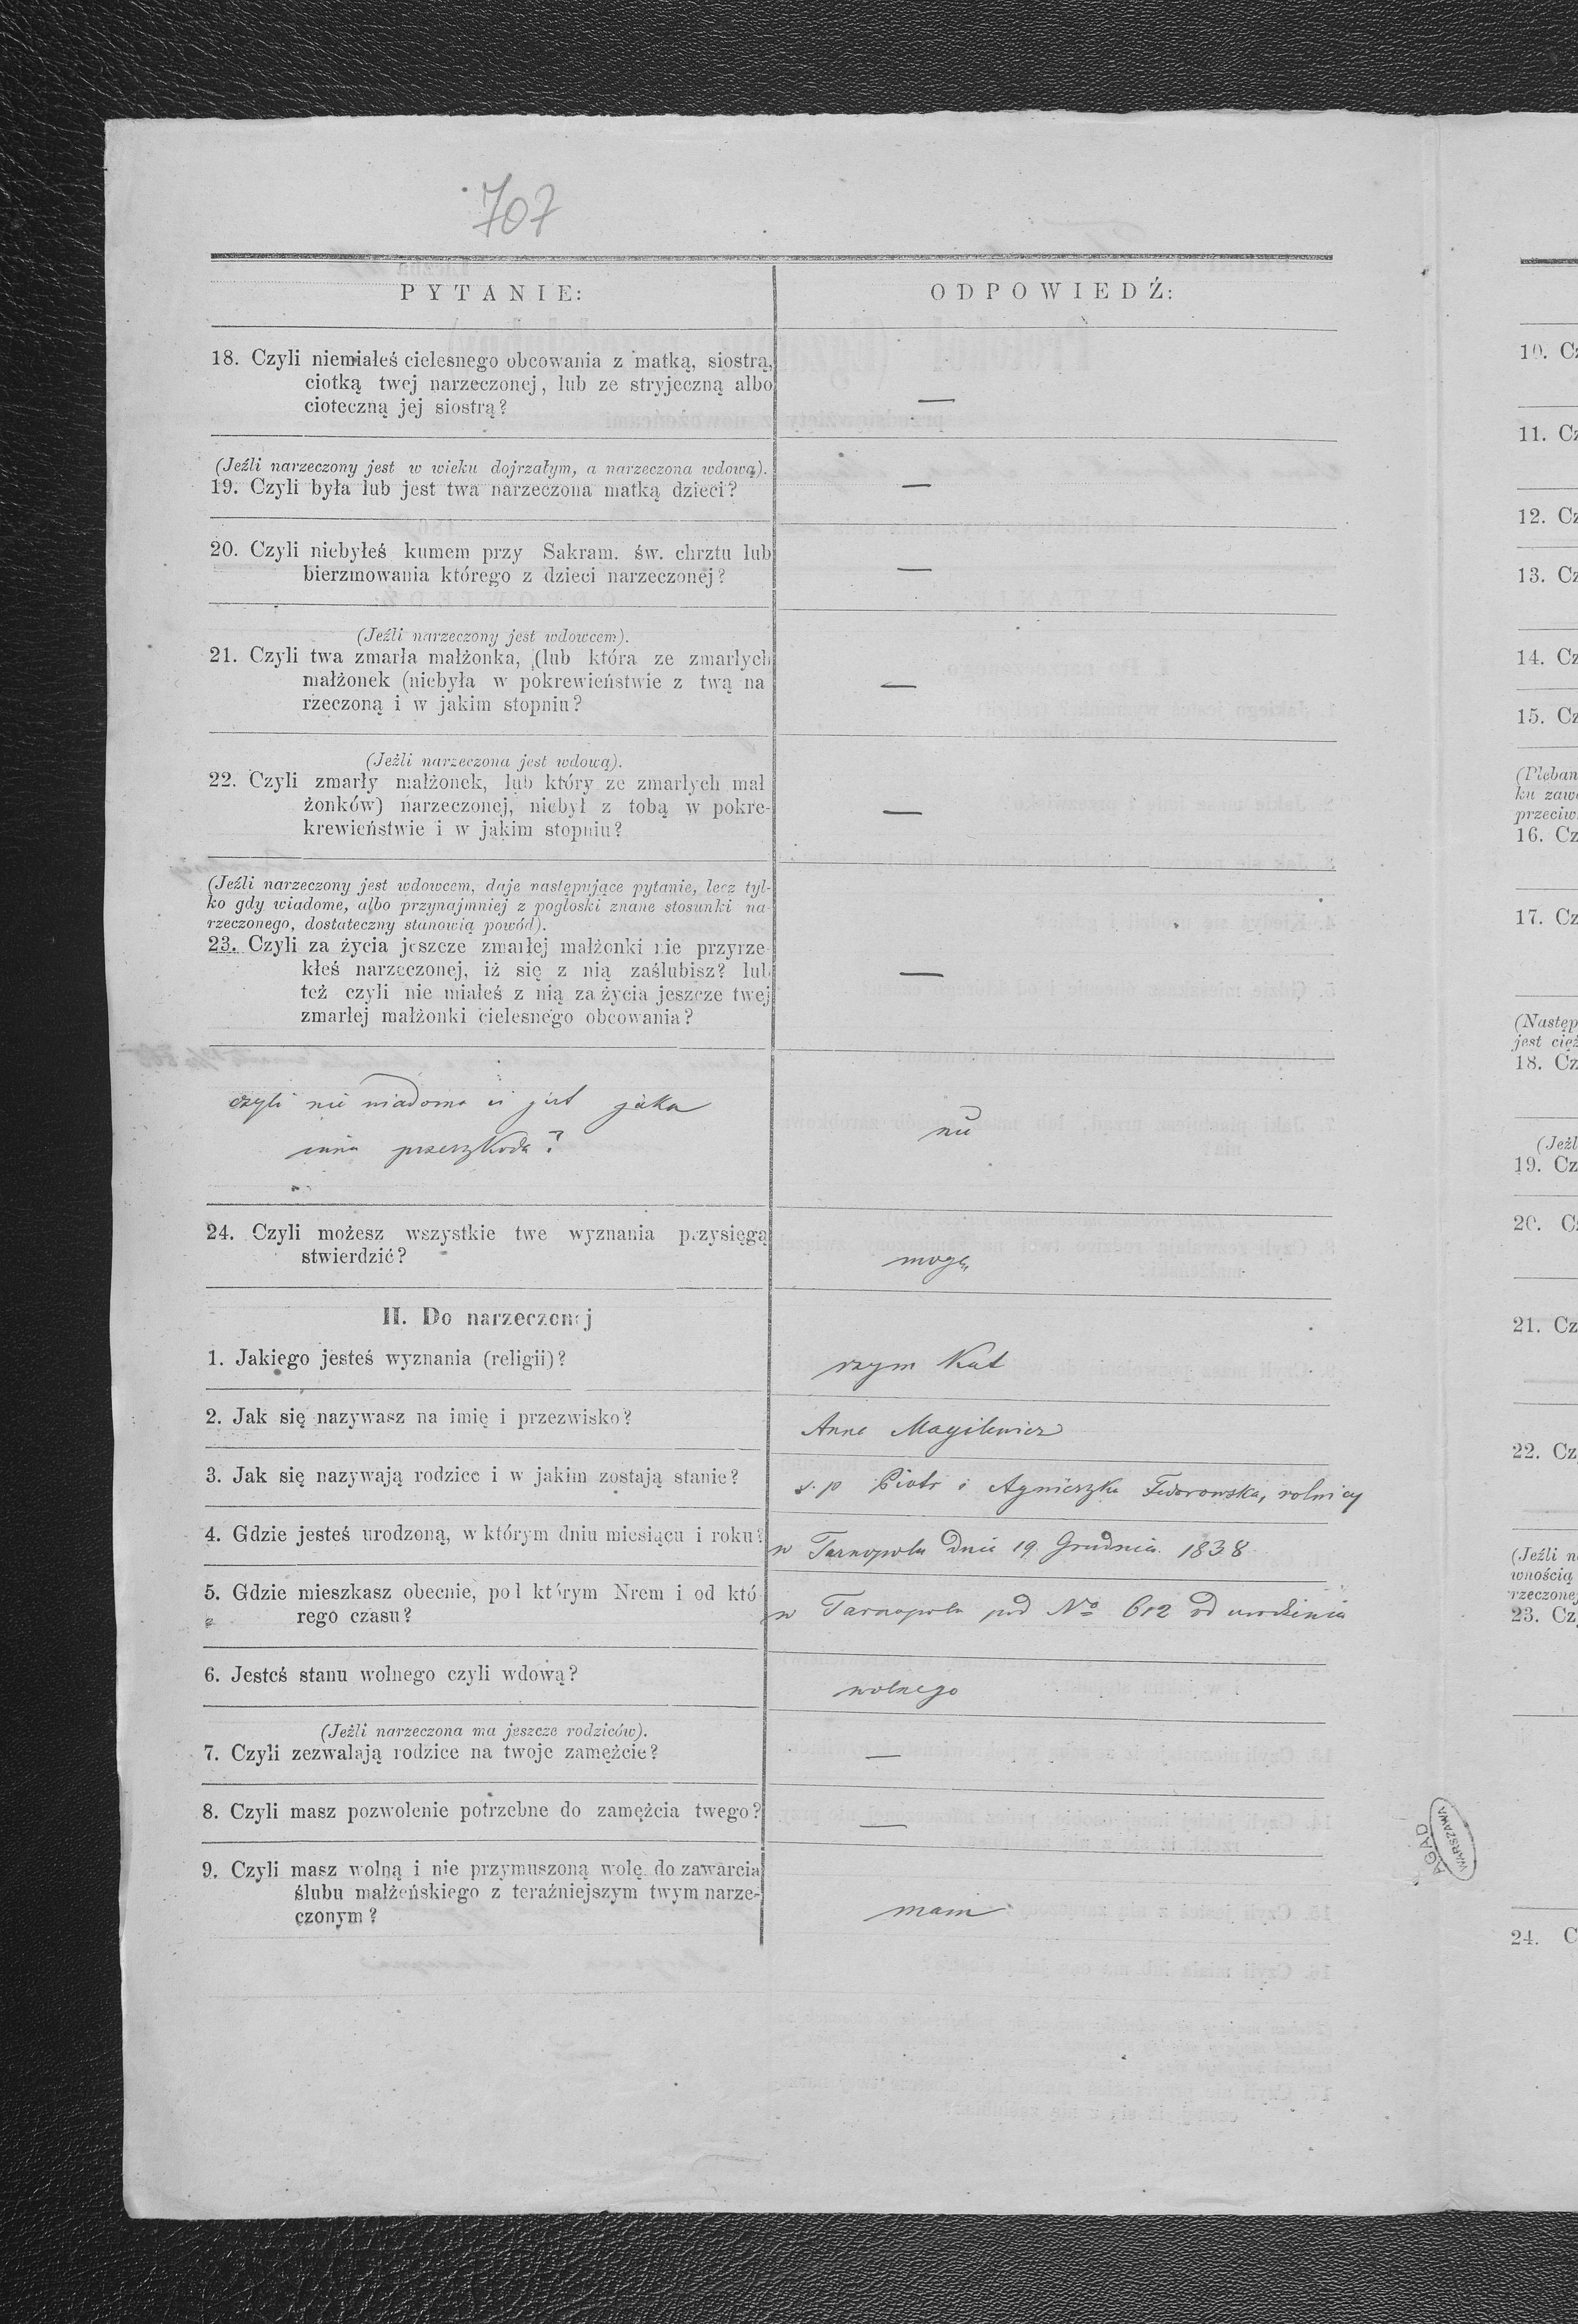 707
PYTANIE:
ODPOWIEDŹ:
18. Czyli niemiałeś cielesnego obcowania z matką, siostrą,
ciotką twej narzeczonej, lub ze stryjeczną albo
cioteczną jej siostrą?
—
(Jeźli narzeczony jest w wieku dojrzałym, a narzeczona wdową).
19. Czyli była lub jest twa narzeczona matką dzieci?
—
20. Czyli niebyłeś kumem przy Sakram. św. chrztu lub
bierzmowania którego z dzieci narzeczonej?
—
(Jeźli narzeczony jest wdowcem).
21. Czyli twa zmarła małżonka, (lub która ze zmarłych
małżonek (niebyła w pokrewieństwie z twą na
rzeczoną i w jakim stopniu?
—
(Jeźli narzeczona jest wdową).
22. Czyli zmarły małżonek, lub który ze zmarłych mał
żonków) narzeczonej, niebył z tobą w pokre-
krewieństwie i w jakim stopniu?
—
(Jeźli narzeczony jest wdowcem, daje następujące pytanie, lecz tyl-
ko gdy wiadome, albo przynajmniej z pogłoski znane stosunki na-
rzeczonego, dostateczny stanowią powód).
23. Czyli za życia jeszcze zmarłej małżonki nie przyrze-
kłeś narzeczonej, iż się z nią zaślubisz? lub
też czyli nie miałeś z nią za życia jeszcze twej
zmarłej małżonki cielesnego obcowania?
—
czyli nie wiadomo ci jest jaka
inna przeszkoda?
nie
24. Czyli możesz wszystkie twe wyznania przysięgą
stwierdzić?
mogę
II. Do narzeczonej
1. Jakiego jesteś wyznania (religii)?
rzym Kat
2. Jak się nazywasz na imię i przezwisko?
Anna Magilewicz
3. Jak się nazywają rodzice i w jakim zostają stanie?
ś. p Piotr i Agnieszka Fedorowska, rolnicy
4. Gdzie jesteś urodzoną, w którym dniu miesiącu i roku?
w Tarnopolu dnia 19 Grudnia 1838
5. Gdzie mieszkasz obecnie, pod którym Nrem i od któ
rego czasu?
w Tarnopolu pod No 612 od urodzenia
6. Jesteś stanu wolnego czyli wdową?
wolnego
(Jeźli narzeczona ma jeszcze rodziców).
7. Czyli zezwalają rodzice na twoje zamężcie?
—
8. Czyli masz pozwolenie potrzebne do zamężcia twego?
—
9. Czyli masz wolną i nie przymuszoną wolę do zawarcia
ślubu małżeńskiego z teraźniejszym twym narze-
czonym?
mam
10. Cz
11. Cz
12. Cz
13. Cz
14. Cz
15. Cz
(Pleban
ku zawo
przeciw
16. Cz
17. Cz
(Następ
jest cięż
18. Cz
(Jeźl
19. Cz
20. C
21. Cz
22. Cz
(Jeźli n
wnością
rzeczonej
23. Cz
24. C
AGAD
WARSZAWA